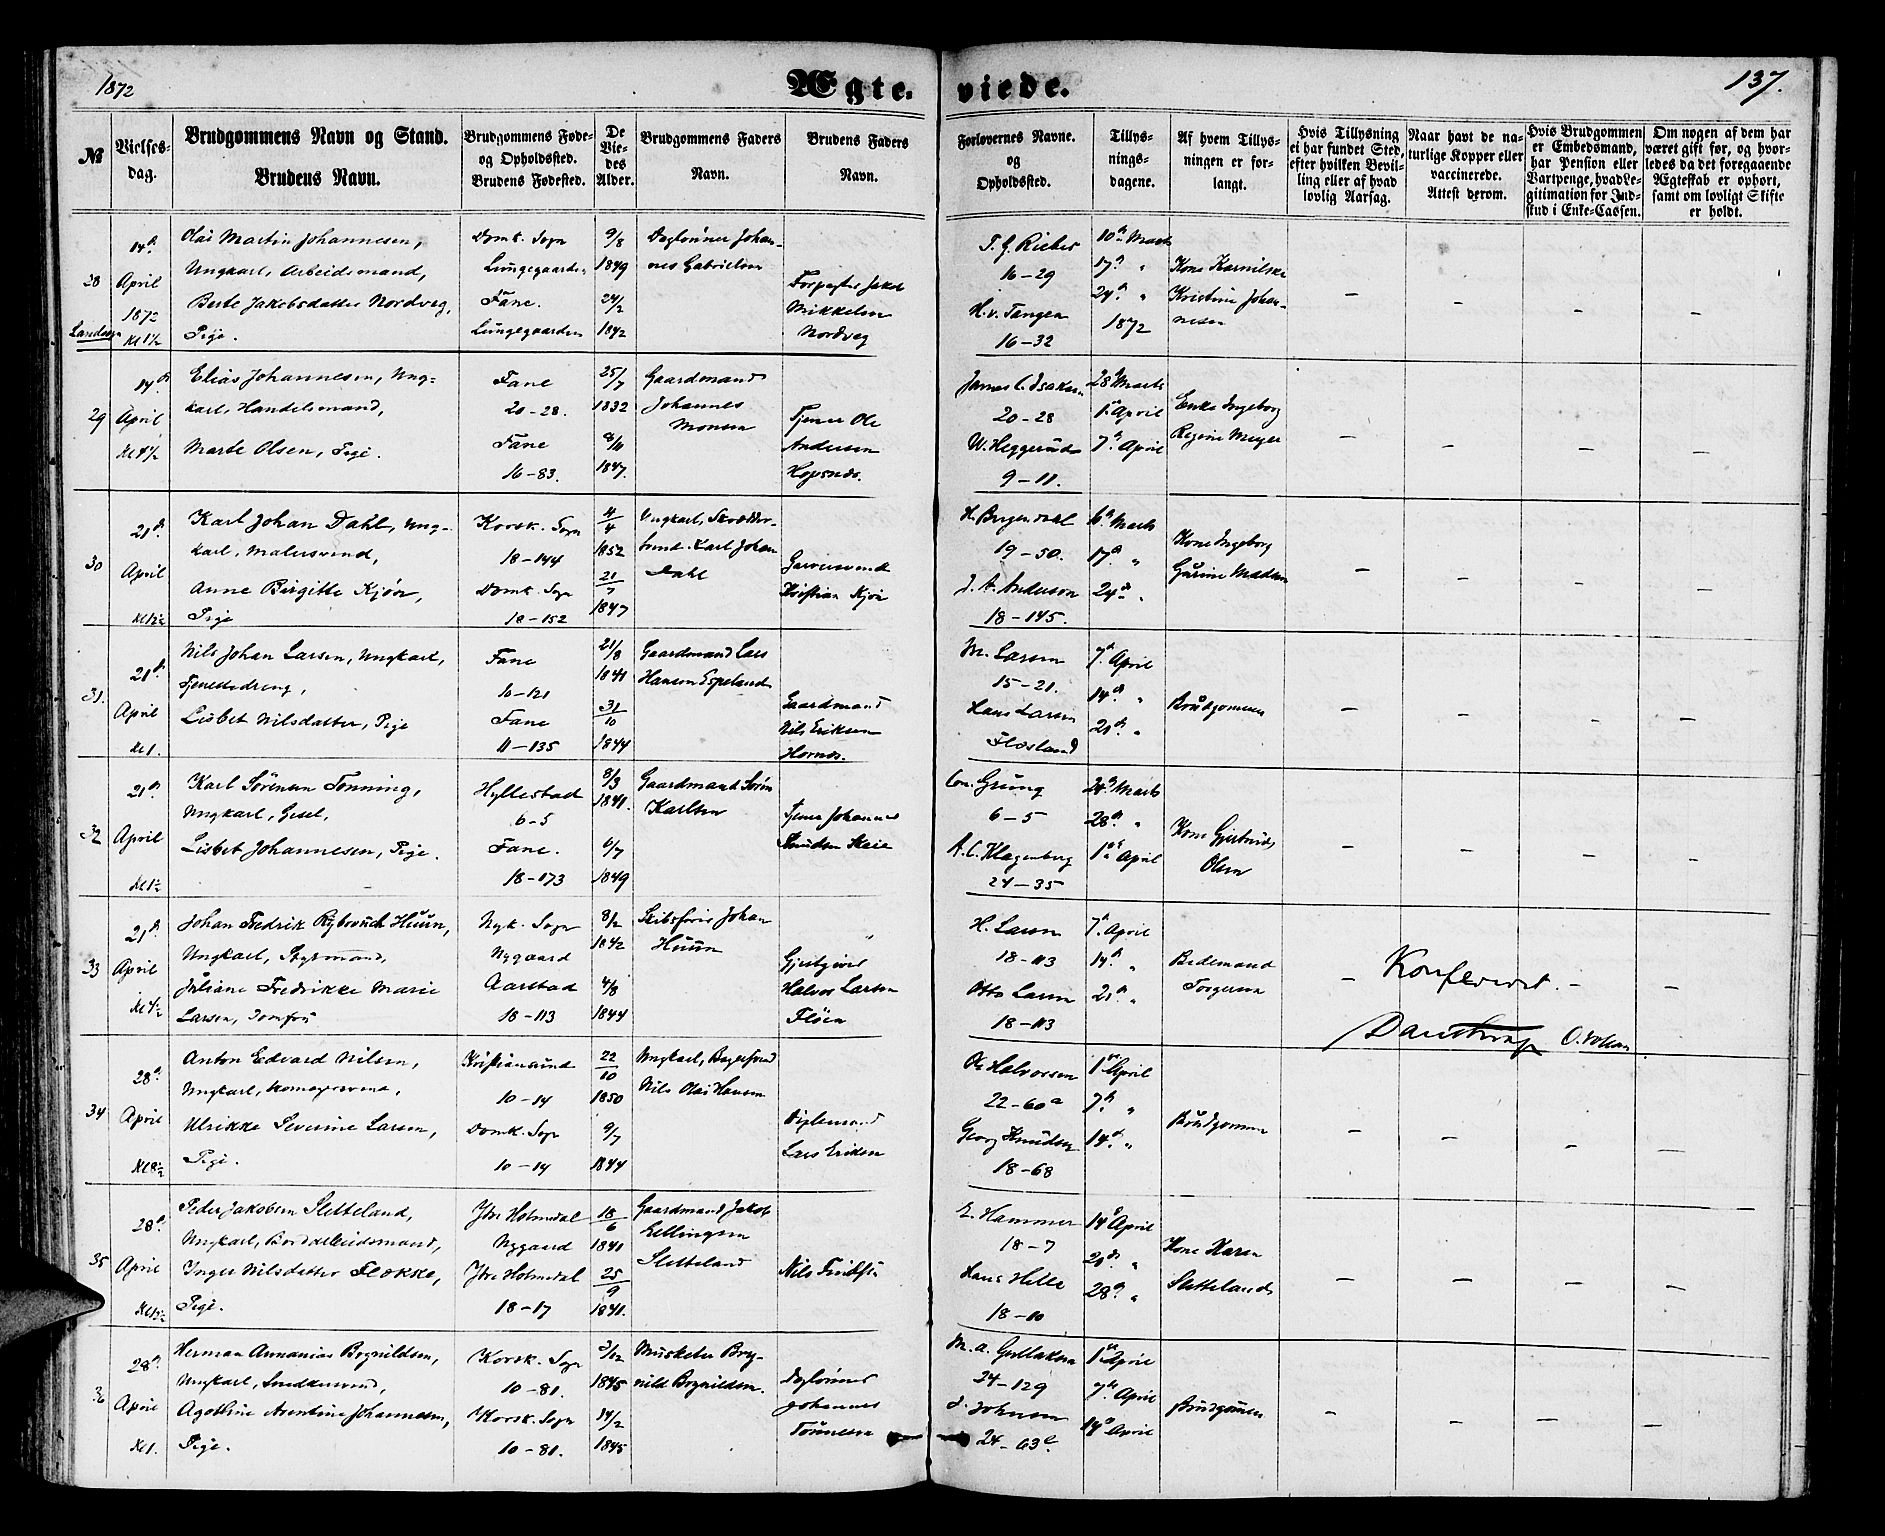 1872
Ægte-
viede.
137.
№
Vielses-
dag.
Brudgommens Navn og Stand.
Brudens Navn.
Brudgommens Føde-
og Opholdssted.
Brudens Fødested.
De
Vie-
des
Alder.
Brudgommens Faders
Navn.
Brudens Faders
Navn.
Forlovernes Navne.
og
Opholdssted.
Tillys-
nings-
dagene.
Af hvem Tillys-
ningen er for-
langt.
Hvis Tillysning
ei har fundet Sted,
efter hvilken Bevil-
ling eller af hvad
lovlig Aarsag.
Naar havt de na-
turlige Kopper eller
vaccinerede.
Attest derom.
Hvis Brudgommen
er Embedsmand,
har Pension eller
Vartpenge, hvad Le-
gitimation for Ind-
skud i Enke-Cassen.
Om nogen af dem har
været gift før, og hvor-
ledes da det foregaaende
Ægteskab er ophørt,
samt om lovligt Skifte
er holdt.
28
14de
April
1872
Kl 1½
Olai Martin Johannesen,
Ungkarl, Arbeidsmand,
Berte Jakobsdatter Nordveg,
Pige.
Domk. Sogn
Lungegaarden
Fane.
Lungegaarden
9/8
1849
24/2
1842
Daglønner Johan-
nes Gabrielsen
Forpagter Jakob
Mikkelsen
Nordveg
T. G. Rieber
16-29
H. v. Tangen
16-32
10de Marts
17de "
24de "
1872
Kone Karnilske
Kristine Johan-
nesen
29
14de
April
Kl 4½
Elias Johannesen, Ung-
karl, Handelsmand,
Marte Olsen, Pige.
Fane
20-28.
Fane
16-83.
25/7
1832
8/11
1847.
Gaardmand
Johannes
Monsen
Tjener Ole
Andersen
Hopsnes.
James C. Isaksen
20-28
W. Heggerud
9-11.
28de Marts
1ste April
7de April
Enke Ingeborg
Regine Meyer
30
21de
April
Kl 12½
Karl Johan Dahl, Ung-
karl, Malersvend,
Anne Birgitte Kjøn,
Pige
Korsk. Sogn
18-144
Domk. Sogn
18-152
4/4
1852
21/7
1847
Ungkarl, Skrædder-
svend Karl Johan
Dahl
Garversvend
Kristian Kjøn
H. Bergendahl
19-50.
J. A. Anderson
18-145.
10de Marts
17de "
24de "
Kone Ingeborg
Gurine Madsen
31.
21de
April
Kl 1.
Nils Johan Larsen, Ungkarl,
Tjenestedreng,
Lisbet Nilsdatter, Pige
Fane
10-121
Fane
11-135
21/8
1841
31/10
1844
Gaardmand Lars
Hansen Espeland
Gaardmand
Nils Eriksen
Hornes.
M. Larsen
15-21.
Hans Larsen
Flesland
7de April
14de "
21de "
Brudgommen
32
21de
April
Kl 1½
Karl Sørensen Tønning,
Ungkarl, Gesel,
Lisbet Johannesen, Pige.
Hyllestad
6-5
Fane.
18-173
8/3
1841.
6/7
1849
Gaardmand Søren
Karlsen
Tjener Johannes
Knudsen Skeie
Con. Grung
6-5
A. C. Klagenberg
24-35
24de Marts
28de "
1ste April
Kone Gjertrud
Olsen
33
21de
April
Kl 4½
Johan Fredrik Huun,
Ungkarl, Styrmand,
Juliane Fredrikke Marie
Larsen, Jomfru
Nyk. Sogn
Nygaard
Aarstad
18-113
8/2
1842
4/8
1844
Skibsfører Johan
Huun
Gjestgiver
Halvor Larsen
Fløen
H. Larsen
18-113
Otto Larsen
18-113
7de April
14de "
21de "
Bedemand
Torgersen
Konfereret.
Daustrup
34
28de
April
Kl 8½
Anton Edvard Nilsen,
Ungkarl,
Ulrikke Severine Larsen,
Pige.
Kristiansund
10-14
Domk. Sogn
10-14
22/10
1850
9/7
1844
Ungkarl, Bagersvend
Nils Olai Hansen
Lars Eriksen
Ole Halvorsen
22-60a
Georg Knudsen
18-68
1ste April
7de "
14de "
Brudgommen
35
28de
April
Kl 12½
Peder Jakobsen Sletteland,
Ungkarl, Bordarbeidsmand,
Inger Nilsdatter Flokke,
Pige.
Ytre Holmedal
Nygaard
Ytre Holmedal
18-17
18/6
1841
25/9
1841.
Gaardmand Jakob
Ellingsen
Sletteland
E. Hammer
18-7
Hans Hille
18-10
14de April
21de "
28de "
Kone Karen
Sletteland
36
28de
April
Kl 1.
Herman Annanias Bognildsen,
Ungkarl, Snedkersvend,
Agethine Arentine Johannesen,
Pige.
Korsk. Sogn
10-81.
Korsk. Sogn
10-81.
3/12
1845
14/2
1845
Musketer Bog-
nild Bognildsen.
Daglønner
Johannes
Tønnesen
24-129
J. Johnsen
24-63c.
1ste April
7de April
14de April
Brudgommen